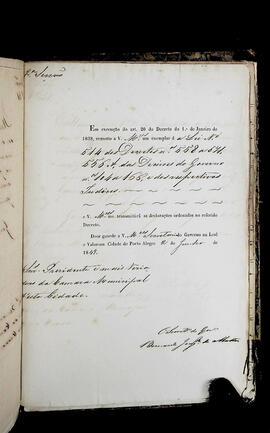 Em execução do art. 20 do Decreto do 1.º de Janeiro de
1838, remetto a V. Mces um exemplar da Lei N.º
514 dos Decretos n.os 558 a 571
556 A, das Decisões do Governo
n.os 104 a 155, e dos respectivos
Indices
V. Mces transmittirá as declarações ordenadas no referido
Decreto.
Deos guarde a V. Mces Secretaria do Governo na Leal
e Valorosa Cidade de Porto Alegre de Junho de
1849.
Snrs. Presidente e mais Verea
dores da Camara Municipal
desta Cidade.